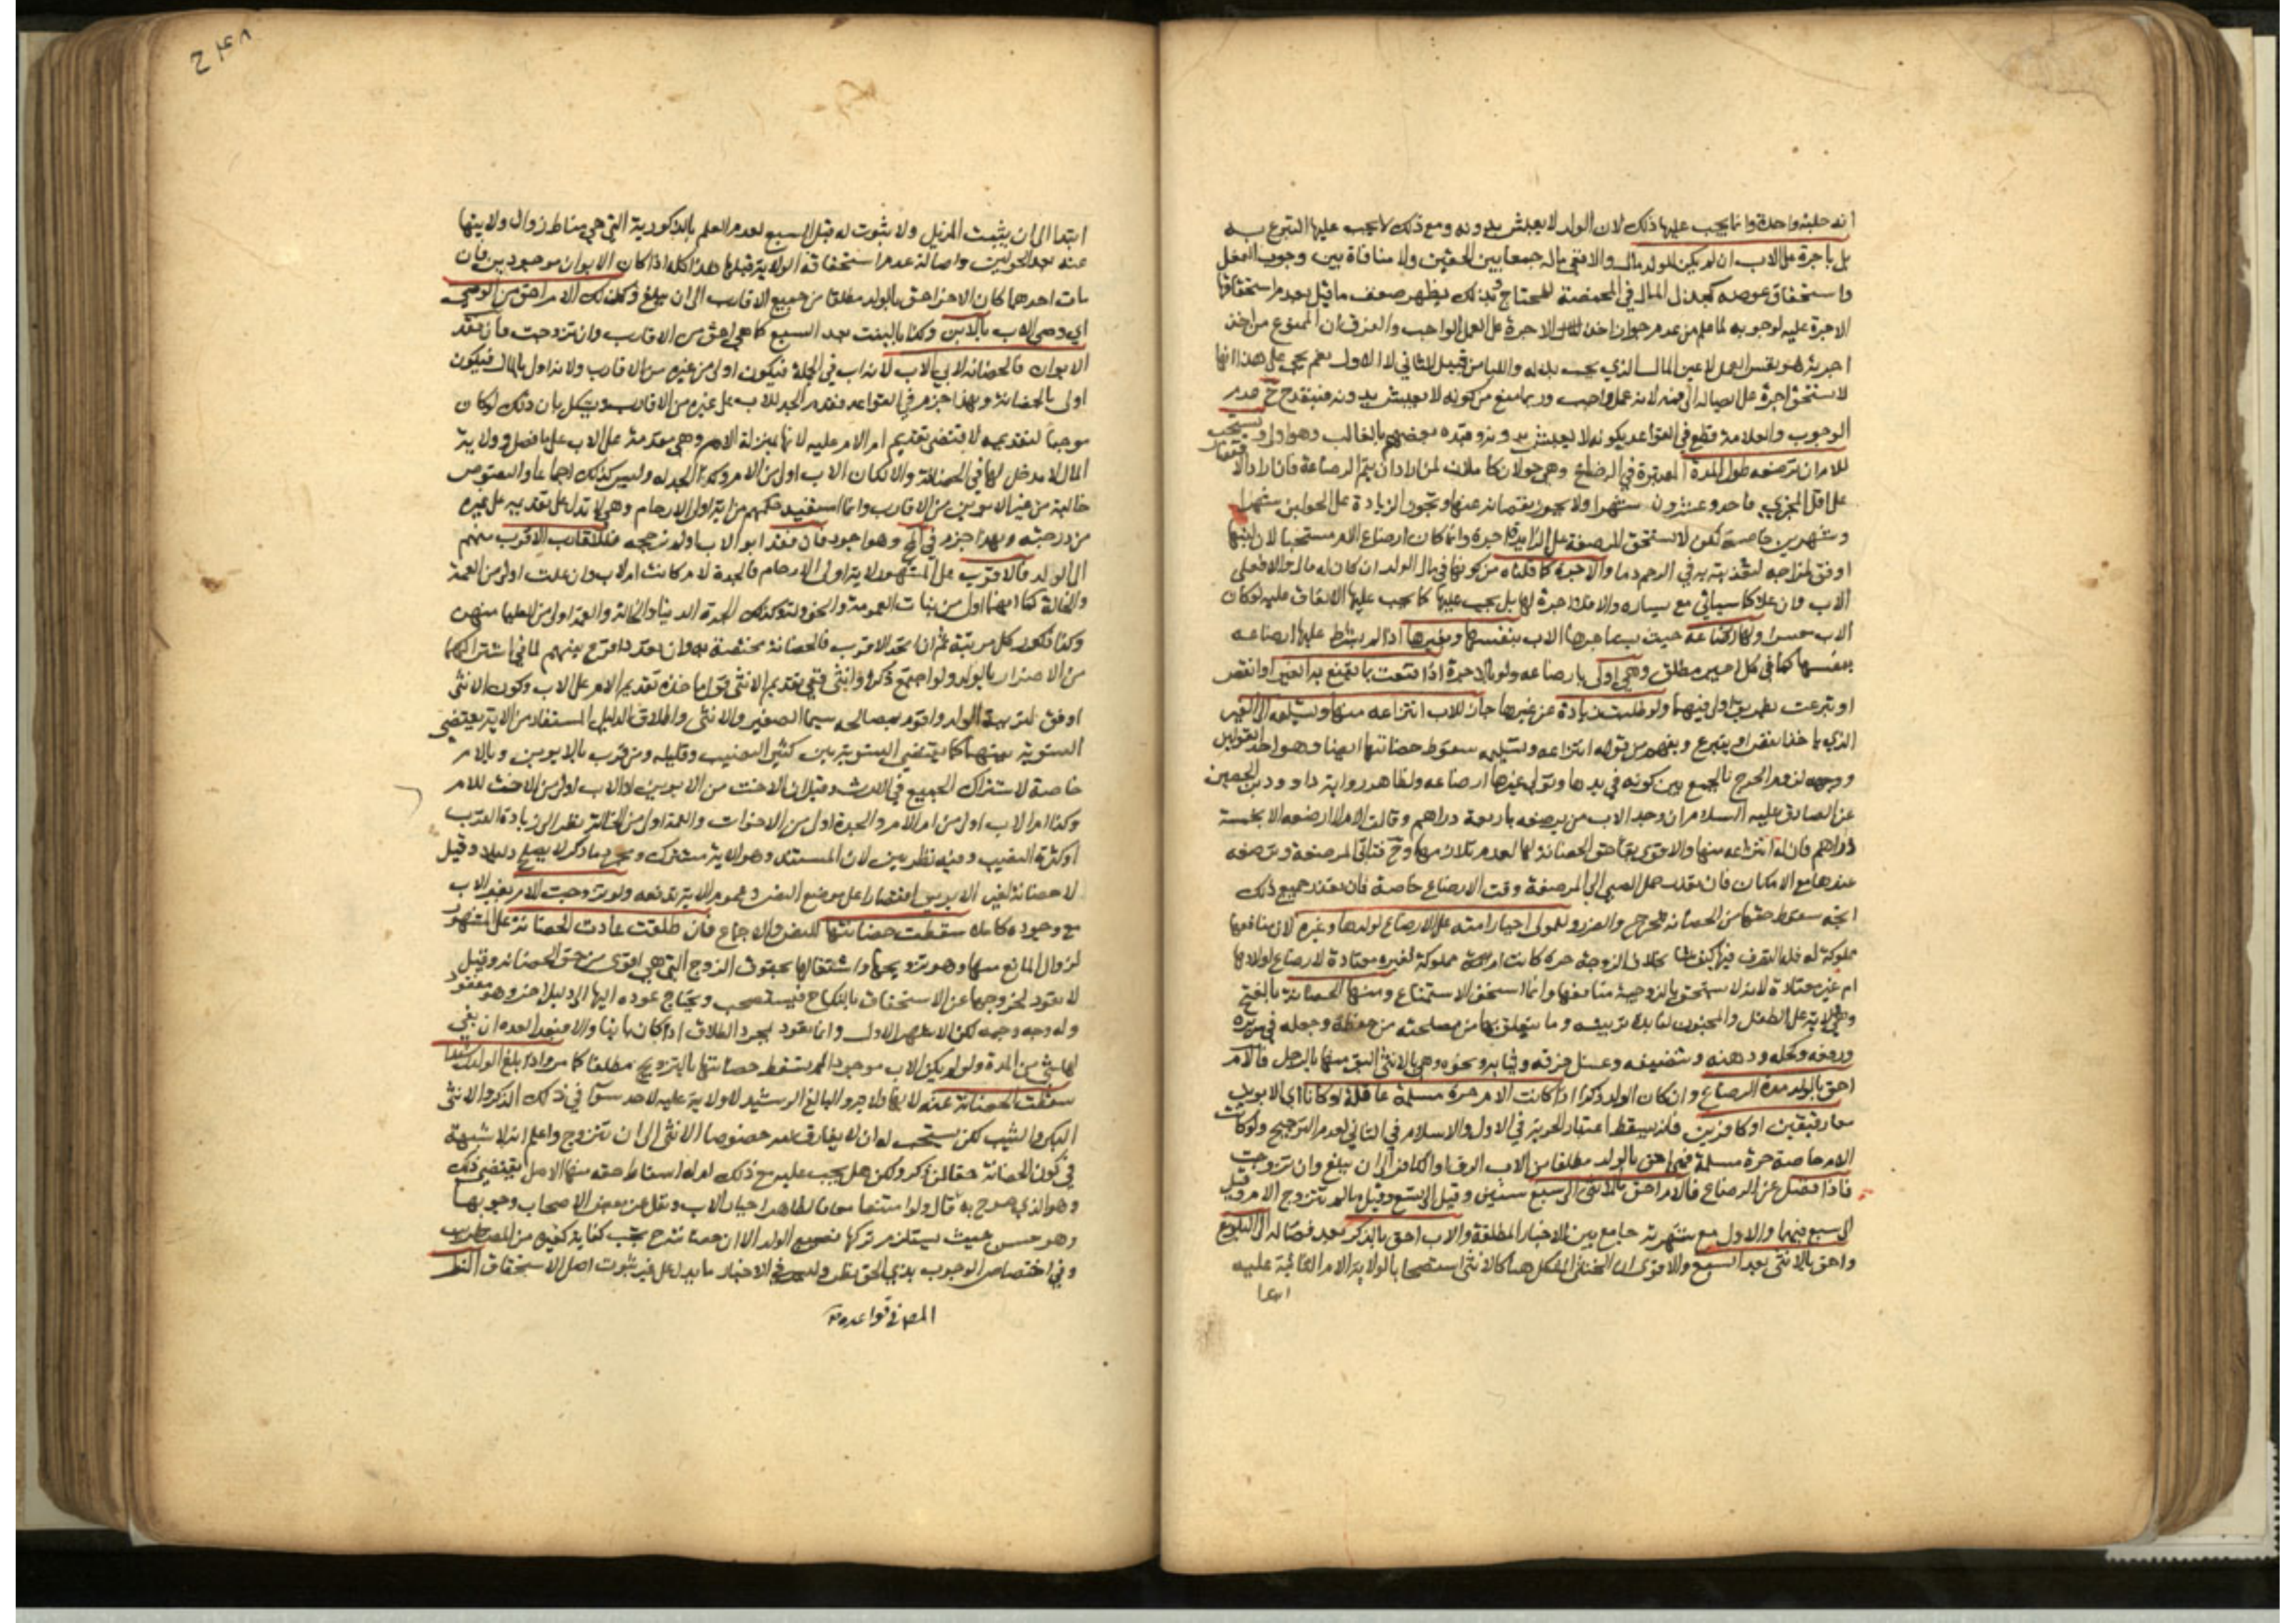 انه حلبة واحدة وانما يجب عليها ذلك لان الولد لا يعيش بدونه ومع ذلك لا يجب عليها التبرع به
بل باجرة على الاب ان لم يكن للولد مال والا ففي ماله جمعا بين الحقين ولا منافاة بين وجوب الفعل
واستحقاق عوضه كبذل المال في المخمصة للمحتاج وبذلك يظهر ضعف ما قيل بعدم استحقاقها
الاجرة عليه لوجوبه لما علم من عدم جواز اخذ الاجرة على العمل الواجب والفرق ان الممنوع من اخذ
اجرته هو نفس العمل لا عين المال الذي يجب بذله واللبا من قبيل الثاني لا الاول نعم يجئ على هذا انها
لا تستحق اجرة على ايصاله الى فمه لانه عمل واجب وربما منع من كونه لا يعيش بدونه فينقدح ح عدم
الوجوب والعلامة قطع في القواعد بكونه لا يعيش بدونه وقيده بعضهم بالغالب وهو اولى ويستحب
للام ان ترضعه طول المدة المعتبرة في الرضاع وهي حولان كاملان لمن اراد ان يتم الرضاعة فان اراد الاقتصار
على اقل المجزي فاحد وعشرون شهرا ولا يجوز نقصانه عنها ويجوز الزيادة على الحولين شهرا
وشهرين خاصة لكن لا تستحق المرضعة على الزايد اجرة وانما كان ارضاع الام مستحبا لان لبنها
اوفق لمزاجه لتغذيته به في الرحم دما والاجرة كما قلناه من كونها في مال الولد ان كان له مال والا فعلى
الاب وان علا كما سياتي مع يساره والا فلا اجرة لها بل يجب عليها كما يجب عليها الانفاق عليه لو كان
الاب معسرا ولها ارضاعه حيث يستاجرها الاب بنفسها وبغيرها اذا لم يشترط عليها ارضاعه
بنفسها كما في كل اجير مطلق وهي اولى بارضاعه ولو بالاجرة اذا قنعت بما يقنع به الغير او انقص
او تبرعت بطريق اولى فيهما ولو طلبت زيادة عن غيرها جاز للاب انتزاعه منها وتسليمه الى الغير
الذي ياخذ انقص او يتبرع ويفهم من قوله انتزاعه وتسليمه سقوط حضانتها ايضا وهو احد القولين
ووجهه لزوم الحرج بالجمع بين كونه في يدها وتولى غيرها ارضاعه ولظاهر رواية داود بن الحصين
عن الصادق عليه السلام ان وجد الاب من يرضعه باربعة دراهم وقالت الام لا ارضعه الا بخمسة
دراهم فان له انتزاعه منها والاقوى بقا حق الحضانة لها لعدم تلازمهما وح فتاتي المرضعة وترضعه
عندها مع الامكان فان تعذر حمل الصبي الى المرضعة وقت الارضاع خاصة فان تعذر جميع ذلك
اتجه سقوط حقها من الحضانة للحرج والضرر وللمولى اجبار امته على الارضاع لولدها وغيره لان منافعها
مملوكة له فله التصرف فيها كيف شا بخلاف الزوجة حرة كانت ام مملوكة لغيره معتادة لارضاع اولادها
ام غير معتادة لانه لا يستحق بالزوجية منافعها وانما استحق الاستمتاع ومنها الحضانة بالفتح
وهي ولاية على الطفل والمجنون لفايدة تربيته وما يتعلق بها من مصلحته من حفظه وجعله في سريره
ورفعه وكحله ودهنه وتنظيفه وغسل خرقه وثيابه ونحوه وهي بالانثى اليق منها بالرجل فالام
احق بالولد مدة الرضاع وان كان الولد ذكرا اذا كانت الام حرة مسلمة عاقلة او كانا اي الابوين
معا رقيقين او كافرين فانه يسقط اعتبار الحرية في الاول والاسلام في الثاني لعدم الترجيح ولو كانت
الام خاصة حرة مسلمة فهي احق بالولد مطلقا من الاب الرق او الكافر الى ان يبلغ وان تزوجت
فاذا فصل عن الرضاع فالام احق بالانثى الى سبع سنين وقيل الى تسع وقيل ما لم تتزوج الام وقيل
الى سبع فيهما والاول مع شهرته جامع بين الاخبار المطلقة والاب احق بالذكر بعد فصاله الى البلوغ
واحق بالانثى بعد السبع والاقوى ان الخنثى المشكل هنا كالانثى استصحابا لولاية الام الثابتة عليه
ابتدا
ابتدا الى ان يثبت المزيل ولا ثبوت له قبل السبع لعدم العلم بالذكورية التي هي مناط زوال ولايتها
عنه بعد الحولين واصالة عدم استحقاقه الولاية قبلها هذا كله اذا كان الابوان موجودين فان
مات احدهما كان الاخر احق بالولد مطلقا من جميع الاقارب الى ان يبلغ وكذلك الام احق من الوصي
اي وصي الاب بالابن وكذا بالبنت بعد السبع كما هي احق من الاقارب وان تزوجت فان فقد
الابوان فالحضانة لابي الاب لانه اب في الجملة فيكون اولى من غيره من الاقارب ولانه اولى بالمال فيكون
اولى بالحضانة وبهذا جزم في القواعد فقدم الجد للاب على غيره من الاقارب ويشكل بان ذلك لو كان
موجبا لتقديمه لاقتضى تقديم ام الام عليه لانها بمنزلة الام وهي مقدمة على الاب على ما فصل وولاية
المال لا مدخل لها في الحضانة والا لكان الاب اولى من الام وكذا الجد له وليس كذلك اجماعا والنصوص
خالية من غير الابوين من الاقارب وانما استفيد حكمهم من اية اولى الارحام وهي لا تدل على تقديمه على غيره
من درجته وبهذا جزم في لف وهو اجود فان فقد ابو الاب او لم نرجحه فللاقارب الاقرب منهم
الى الولد فالاقرب على المشهور لاية اولى الارحام فالجدة لام كانت ام لاب وان علت اولى من العمة
والخالة كما انهما اولى من بنات العمومة والخؤولة وكذلك الجدة الدنيا والخالة والعمة اولى من العليا منهن
وكذا ذكور كل مرتبة ثم ان اتحد الاقرب فالحضانة مختصة به وان تعدد اقرع بينهم لما في اشتراكها
من الاضرار بالولد ولو اجتمع ذكر وانثى ففي تقديم الانثى قول ماخذه تقديم الام على الاب وكون الانثى
اوفق لتربية الولد واقوم بمصالحه سيما الصغير والانثى واطلاق الدليل المستفاد من الاية يقتضي
التسوية بينهما كما يقتضي التسوية بين كثير النصيب وقليله ومن تقرب بالابوين وبالام
خاصة لاشتراك الجميع في الارث وقيل ان الاخت من الابوين او الاب اولى من الاخت للام
وكذا ام الاب اولى من ام الام والجدة اولى من الاخوات والعمة اولى من الخالة نظرا الى زيادة القرب
او كثرة النصيب وفيه نظر بين لان المستند وهو الاية مشترك ومجرد ما ذكر لا يصلح دليلا وقيل
لا حضانة لغير الابوين اقتصارا على موضع النص وعموم الاية يدفعه ولو تزوجت الام بغير الاب
مع وجوده كاملا سقطت حضانتها للنص والاجماع فان طلقت عادت الحضانة على المشهور
لزوال المانع منها وهو تزويجها واشتغالها بحقوق الزوج التي هي اقوى من حق الحضانة وقيل
لا تعود لخروجها عن الاستحقاق بالنكاح فيستصحب ويحتاج عوده اليها الى دليل اخر وهو مفقود
وله وجه وجيه لكن الاشهر الاول وانما تعود بمجرد الطلاق اذا كان باينا والا فبعد العدة ان بقي
لها شئ من المدة ولو لم يكن الاب موجودا لم تسقط حضانتها بالتزويج مطلقا كما مر واذا بلغ الولد رشيدا
سقطت الحضانة عنه لانها ولاية والبالغ الرشيد لا ولاية عليه لاحد سوا في ذلك الذكر والانثى
البكر والثيب لكن يستحب له ان لا يفارق امه خصوصا الانثى الى ان تتزوج واعلم انه لا شبهة
في كون الحضانة حقا لمن ذكر ولكن هل يجب عليه مع ذلك ام له اسقاط حقه منها الاصل يقتضي ذلك
وهو الذي صرح به قال ولو امتنعا معا فالظاهر اجبار الاب ونقل عن بعض الاصحاب وجوبها
وهو حسن حيث يستلزم تركها تضييع الولد الا ان حضانته ح تجب كفاية كغيره من المضطرين
وفي اختصاص الوجوب بذي الحق نظر وليس في الاخبار ما يدل على غير ثبوت اصل الاستحقاق النظر
المص في قواعده